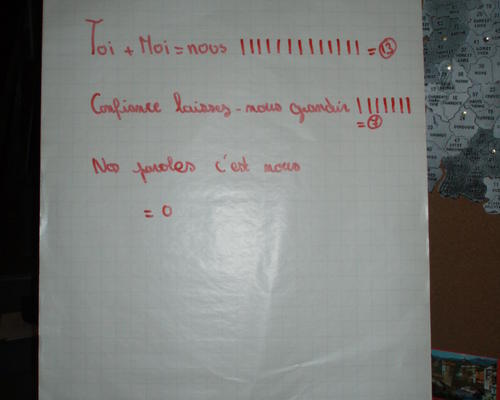 Toi + Moi = nous ||||||||||||| = 13
Confiance laisses-nous grandir ||||||| 
= 7
Nos paroles c'est nous
= 0